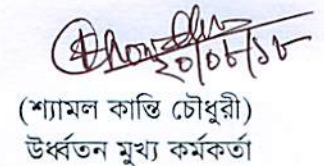 ২০/০৮/১৮
(শ্যামল কান্তি চৌধুরী)
উর্ধ্বতন মুখ্য কর্মকর্তা